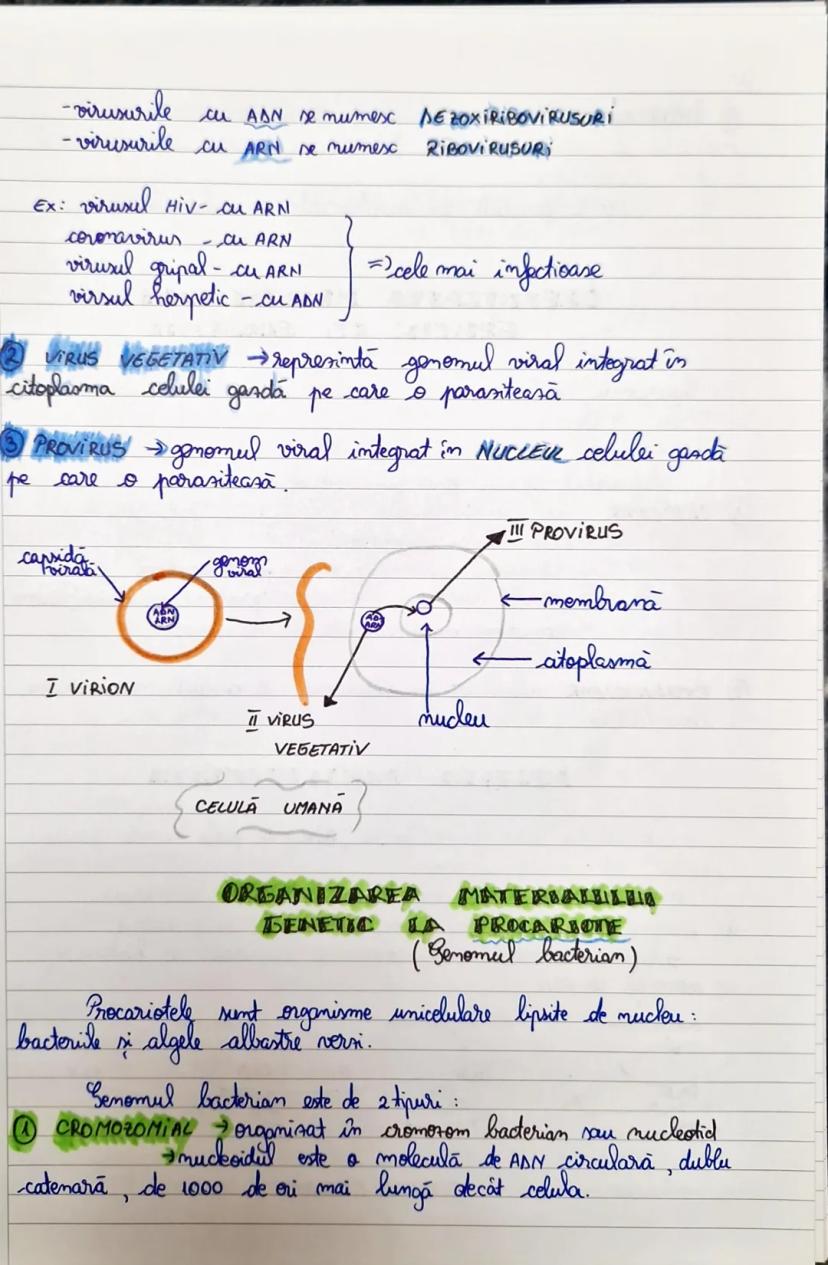 -virusurile cu ADN se numesc DEZOXIRIBOVIRUSURI
-virusurile cu ARN se numesc RIBOVIRUSURI
Ex: virusul HIV- cu ARN
coronavirus - cu ARN
virusul gripal - cu ARN
virsul herpetic - cu ADN
=> cele mai infectioase
2 VIRUS VEGETATIV → reprezintă genomul viral integrat în
citoplasma celulei gazdă pe care o parazitează
3 PROVIRUS → genomul viral integrat în NUCLEUL celulei gazdă
pe care o parazitează.
III PROVIRUS
capsidă
virală
genom
viral
ADN
ARN
AD
ARN
← membrană
← citoplasmă
I VIRION
II VIRUS
VEGETATIV
nucleu
{ CELULĂ UMANĂ }
ORGANIZAREA MATERIALULUI
GENETIC LA PROCARIOTE
(Genomul bacterian)
Procariotele sunt organisme unicelulare lipsite de nucleu:
bacteriile și algele albastre verzi.
Genomul bacterian este de 2 tipuri:
1 CROMOZOMIAL → organizat în cromozom bacterian sau nucleotid
→ nucleoidul este o moleculă de ADN circulară, dublu
catenară, de 1000 de ori mai lungă decât celula.